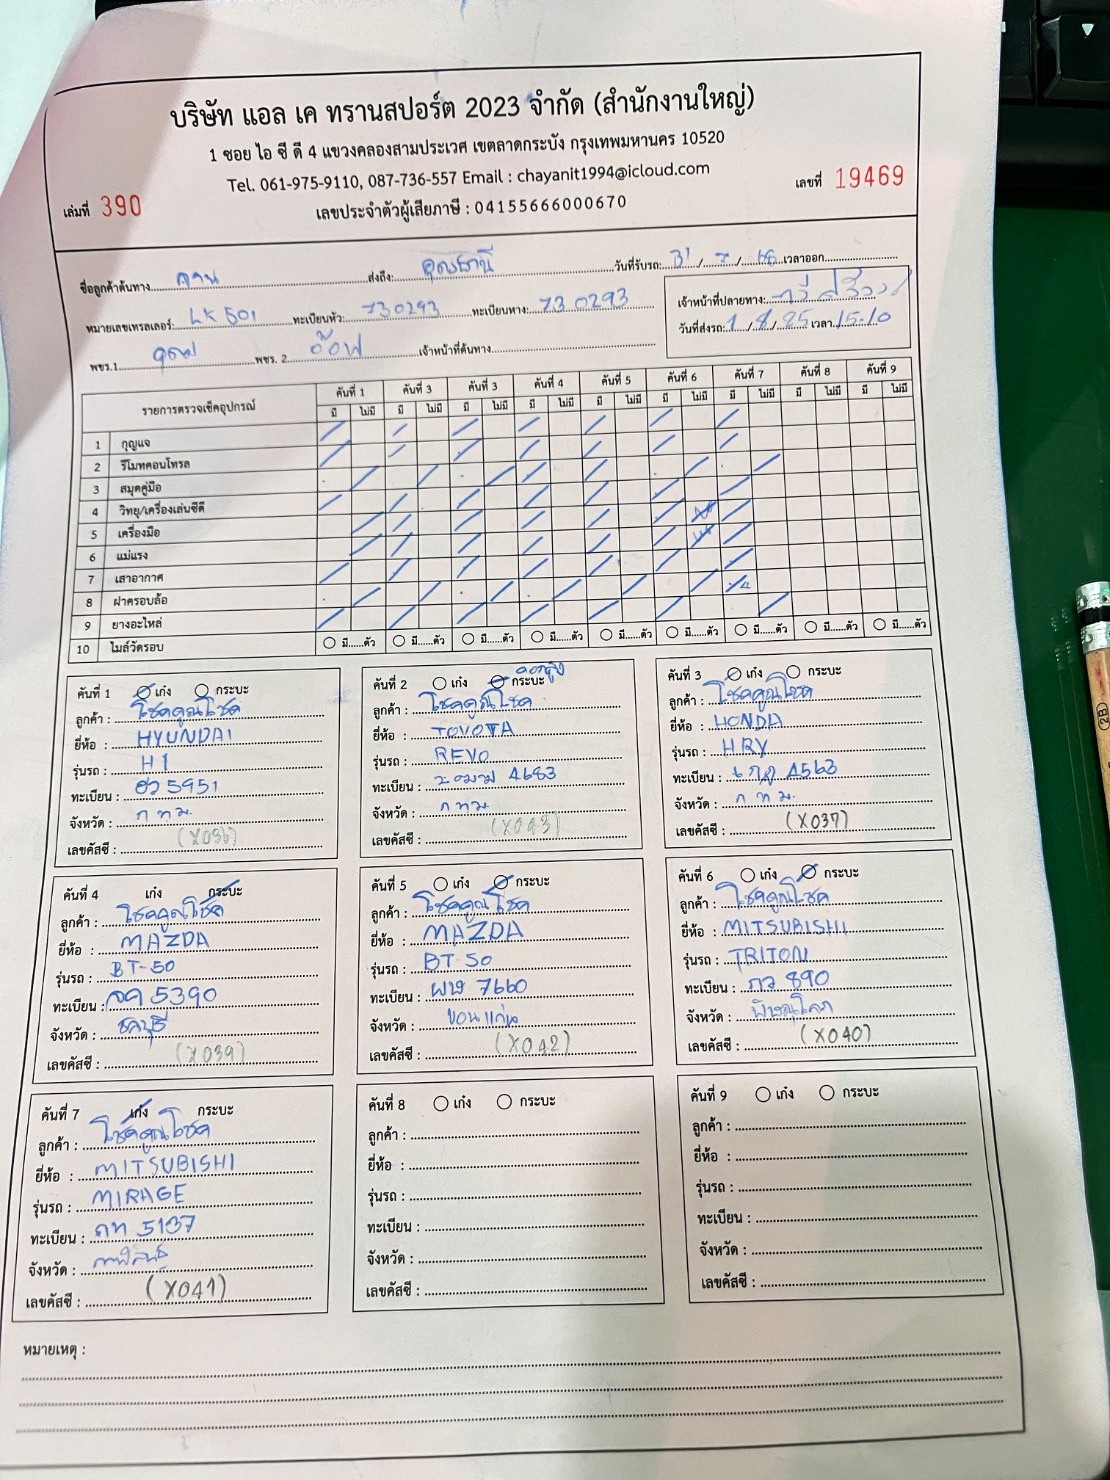 บริษัท แอล เค ทรานสปอร์ต 2023 จำกัด (สำนักงานใหญ่)
1 ซอย ไอ ซี ดี 4 แขวงคลองสามประเวศ เขตลาดกระบัง กรุงเทพมหานคร 10520
Tel. 061-975-9110, 087-736-557 Email : chayanit1994@icloud.com
เล่มที่ 390 เลขที่ 19469
เลขประจำตัวผู้เสียภาษี : 04155666000670
ชื่อลูกค้าต้นทาง ลาน ส่งถึง: อุดรธานี วันที่รับรถ: 31 / 7 / 68 เวลาออก
หมายเลขเทรลเลอร์: LK 501 ทะเบียนหัว: 730293 ทะเบียนหาง: 730293
เจ้าหน้าที่ปลายทาง:
วันที่ส่งรถ: 1 / 8 / 25 เวลา 15.10
พขร.1 พขร. 2 อ๊อฟ เจ้าหน้าที่ต้นทาง
รายการตรวจเช็คอุปกรณ์ คันที่ 1 คันที่ 3 คันที่ 3 คันที่ 4 คันที่ 5 คันที่ 6 คันที่ 7 คันที่ 8 คันที่ 9
มี ไม่มี มี ไม่มี มี ไม่มี มี ไม่มี มี ไม่มี มี ไม่มี มี ไม่มี มี ไม่มี มี ไม่มี
1 กุญแจ
2 รีโมทคอนโทรล
3 สมุดคู่มือ
4 วิทยุ/เครื่องเล่นซีดี
5 เครื่องมือ
6 แม่แรง
7 เสาอากาศ
8 ฝาครอบล้อ
9 ยางอะไหล่
10 ไมล์วัดรอบ มี......ตัว มี......ตัว มี......ตัว มี......ตัว มี......ตัว มี......ตัว มี......ตัว มี......ตัว มี......ตัว
คันที่ 1 เก๋ง กระบะ
ลูกค้า : โชคคูณโชค
ยี่ห้อ : HYUNDAI
รุ่นรถ : H1
ทะเบียน : ฮว 5951
จังหวัด : กทม.
เลขคัสซี : (X036)
คันที่ 2 เก๋ง กระบะ
ลูกค้า : โชคคูณโชค
ยี่ห้อ : TOYOTA
รุ่นรถ : REVO
ทะเบียน : 2ฒฒ 4683
จังหวัด : กทม.
เลขคัสซี : (X043)
คันที่ 3 เก๋ง กระบะ
ลูกค้า : โชคคูณโชค
ยี่ห้อ : HONDA
รุ่นรถ : HRV
ทะเบียน : 6กฎ 4563
จังหวัด : กทม.
เลขคัสซี : (X037)
คันที่ 4 เก๋ง กระบะ
ลูกค้า : โชคคูณโชค
ยี่ห้อ : MAZDA
รุ่นรถ : BT-50
ทะเบียน : 5390
จังหวัด : ชลบุรี
เลขคัสซี : (X039)
คันที่ 5 เก๋ง กระบะ
ลูกค้า : โชคคูณโชค
ยี่ห้อ : MAZDA
รุ่นรถ : BT-50
ทะเบียน : ผษ 7660
จังหวัด : ขอนแก่น
เลขคัสซี : (X042)
คันที่ 6 เก๋ง กระบะ
ลูกค้า : โชคคูณโชค
ยี่ห้อ : MITSUBISHI
รุ่นรถ : TRITON
ทะเบียน : กว 890
จังหวัด : พิษณุโลก
เลขคัสซี : (X040)
คันที่ 7 เก๋ง กระบะ
ลูกค้า : โชคคูณโชค
ยี่ห้อ : MITSUBISHI
รุ่นรถ : MIRAGE
ทะเบียน : กท 5137
จังหวัด : กาฬสินธุ์
เลขคัสซี : (X041)
คันที่ 8 เก๋ง กระบะ
ลูกค้า :
ยี่ห้อ :
รุ่นรถ :
ทะเบียน :
จังหวัด :
เลขคัสซี :
คันที่ 9 เก๋ง กระบะ
ลูกค้า :
ยี่ห้อ :
รุ่นรถ :
ทะเบียน :
จังหวัด :
เลขคัสซี :
หมายเหตุ :
2B